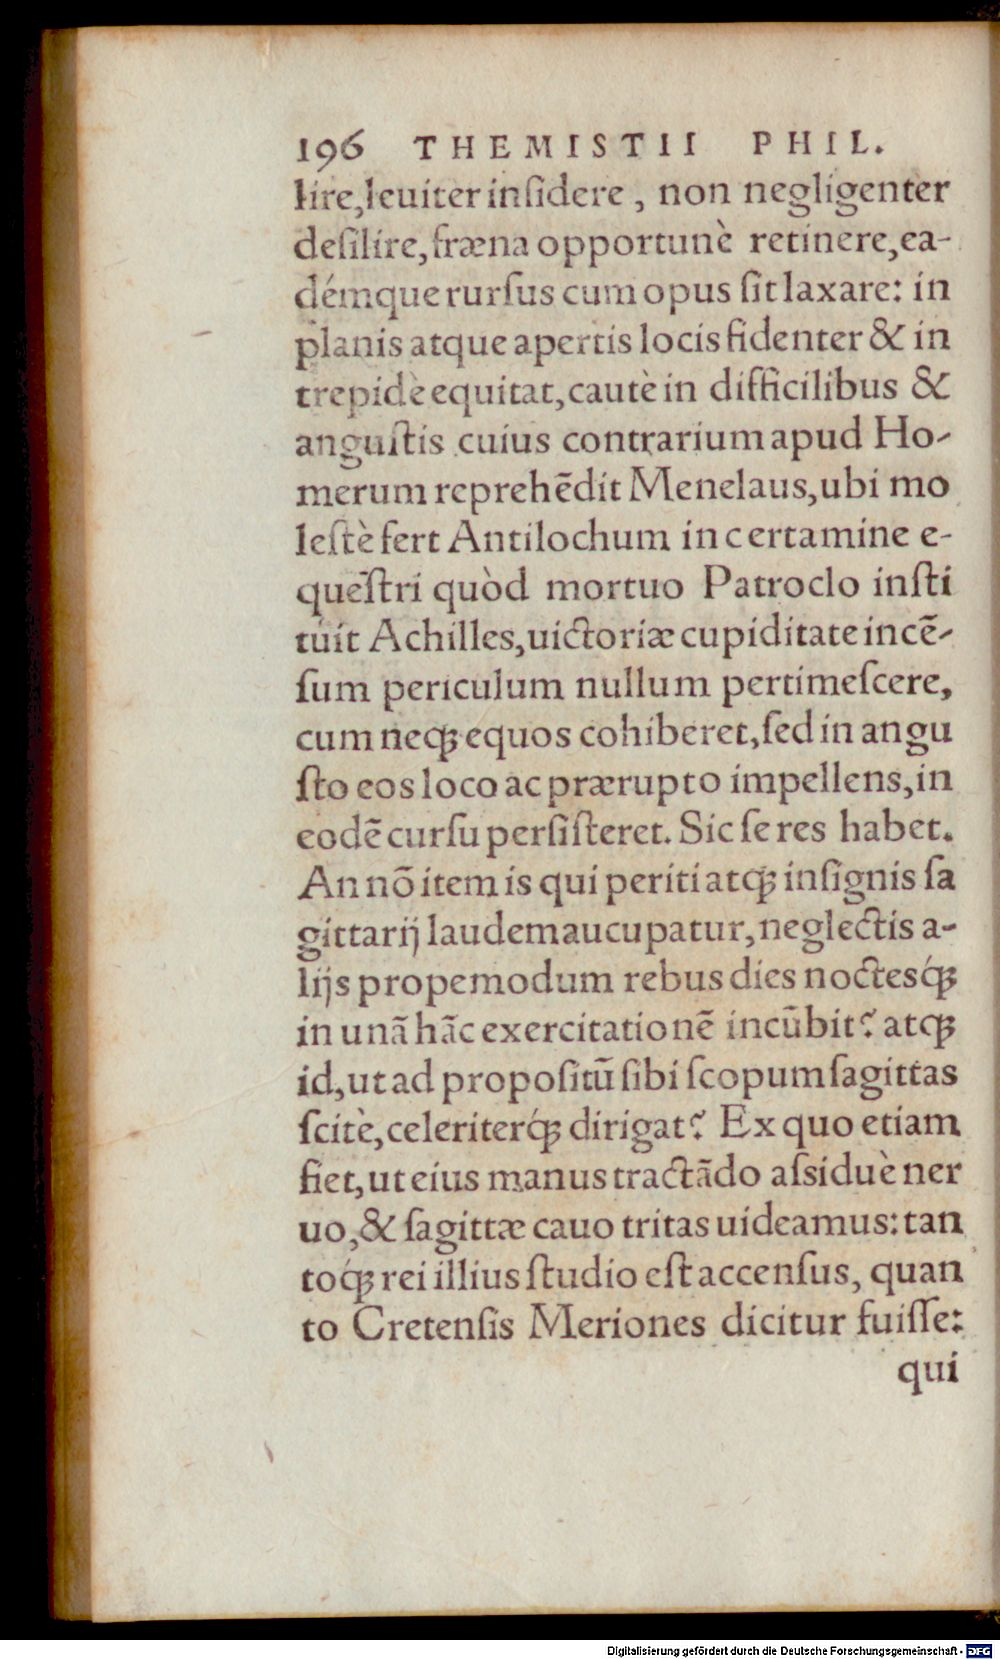 196 THEMISTII PHIL.
lire, leuiter insidere, non negligenter
desilire, fræna opportunè retinere, ea-
démque rursus cum opus sit laxare: in
planis atque apertis locis fidenter & in
trepidè equitat, cautè in difficilibus &
angustis cuius contrarium apud Ho-
merum reprehēdit Menelaus, ubi mo
lestè fert Antilochum in certamine e-
questri quòd mortuo Patroclo insti
tuit Achilles, uictoriæ cupiditate incē-
sum periculum nullum pertimescere,
cum neqꝫ equos cohiberet, sed in angu
sto eos loco ac prærupto impellens, in
eodē cursu persisteret. Sic se res habet.
An nō item is qui periti atqꝫ insignis sa
gittarij laudem aucupatur, neglectis a-
lijs propemodum rebus dies noctesq́ꝫ
in unā hāc exercitationē incūbit? atqꝫ
id, ut ad propositū sibi scopum sagittas
scitè, celeriterq́ꝫ dirigat? Ex quo etiam
fiet, ut eius manus tractādo assiduè ner
uo, & sagittæ cauo tritas uideamus: tan
toq́ꝫ rei illius studio est accensus, quan
to Cretensis Meriones dicitur fuisse:
qui
Digitalisierung gefördert durch die Deutsche Forschungsgemeinschaft - DFG